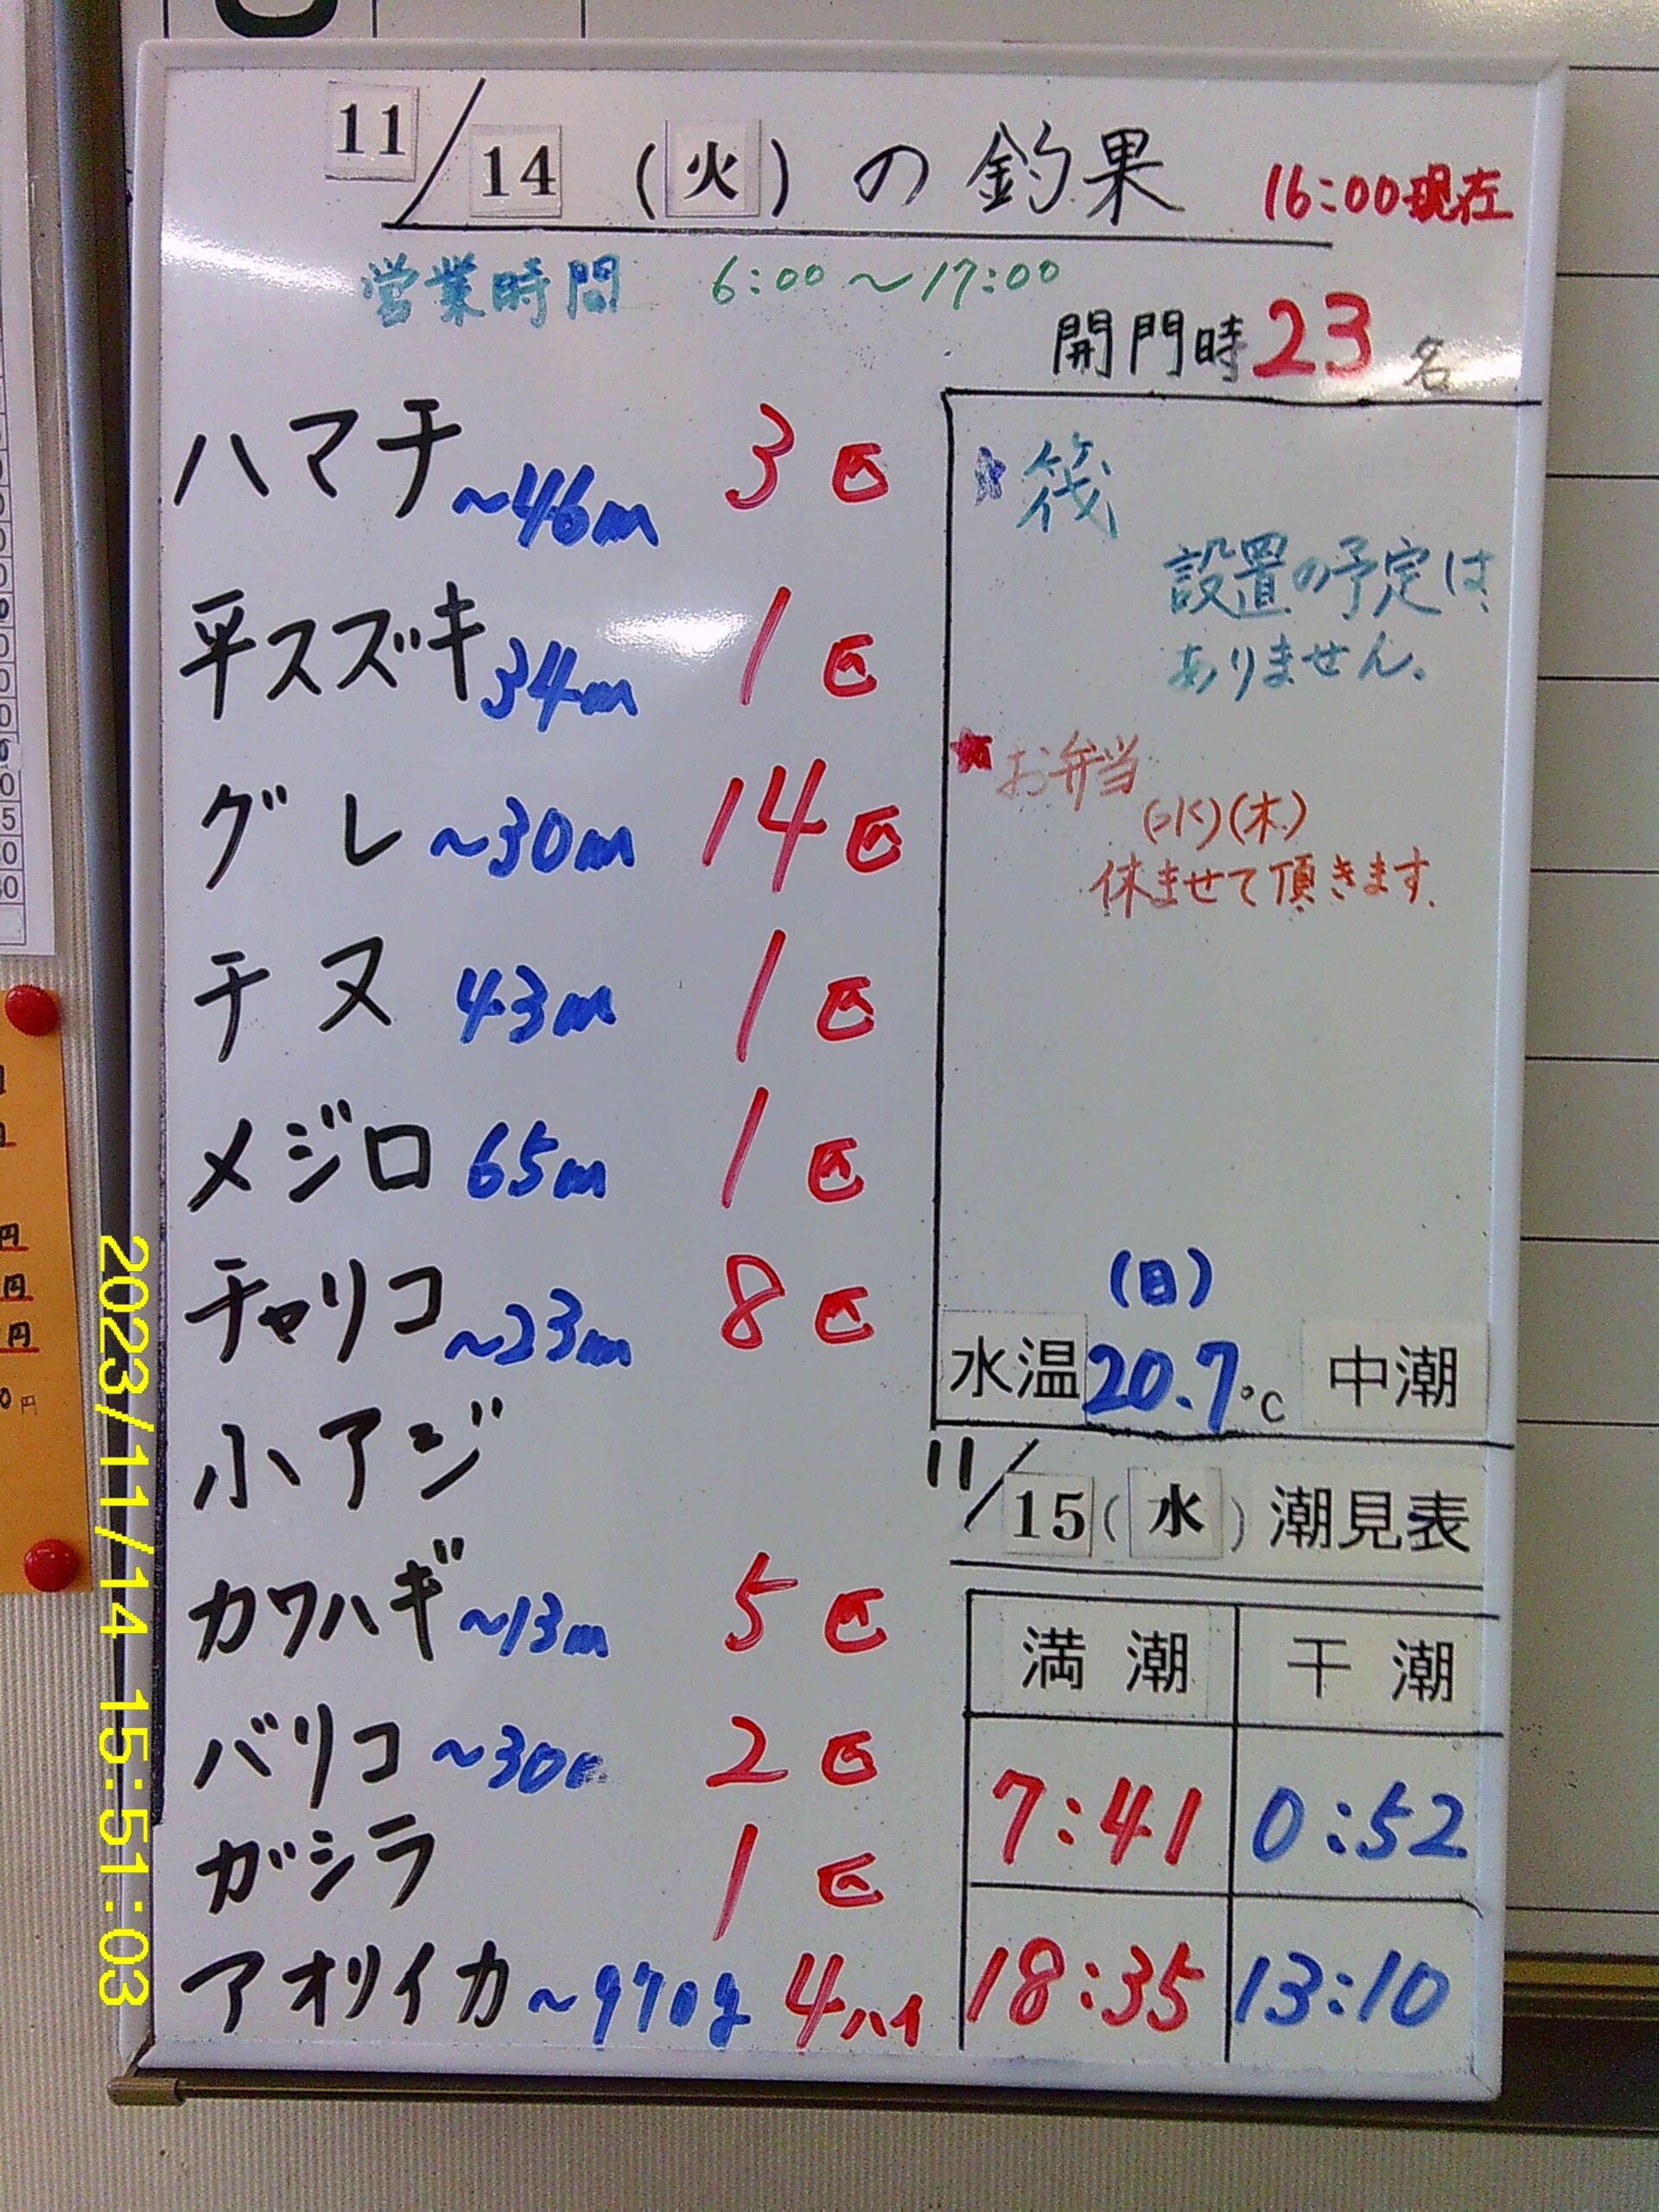 11/14(火)の釣果 16:00現在
営業時間 6:00～17:00
開門時23名
ハマチ～46cm 3匹
平スズキ34cm 1匹
グレ～30cm 14匹
チヌ 43cm 1匹
メジロ 65cm 1匹
チャリコ～23cm 8匹
小アジ
カワハギ～13cm 5匹
バリコ～30c 2匹
ガシラ 1匹
アオリイカ～970g 4ハイ
★筏
設置の予定は
ありません。
★お弁当
(水)(木)
休ませて頂きます.
(日)
水温20.7℃ 中潮
11/15(水)潮見表
満潮 干潮
7:41 0:52
18:35 13:10
2023/11/14 15:51:03